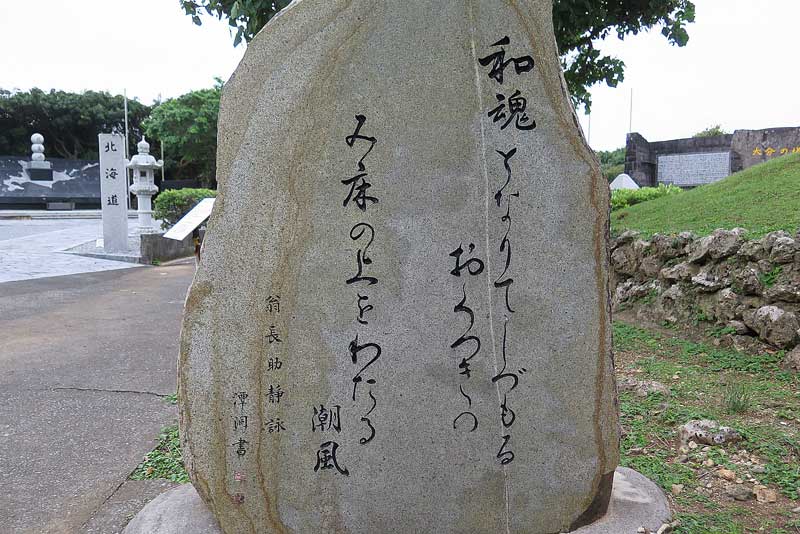 和魂となりてしづもる
おくつきの
み床の上をわたる
潮風
翁長助静 詠
澤潤 書
北海道